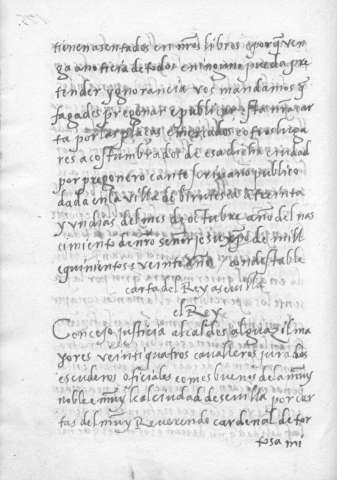 tienen asentados en nros libros e porq̃ ven
ga a noticia de todos e ninguno pueda pre
tender ygnorancia vos mandamos q̃
fagades pregonar e publicar esta nra car
ta por las plaças e mercados e otros luga
res acostumbrados de esa dicha ciudad
por pregonero e ante scrivano publico
dada en la villa de bruselas a treinta
y un dias del mes de otubre año del nas
cimiento de nro señor jesu xp̃o de mill
e quinientos e veinte años condestable
carta del Rey a sevilla
el Rey
Concejo justicia alcaldes alguazil ma
yores veinti quatros cavalleros jurados
escuderos oficiales e omes buenos de la muy
noble e muy leal ciudad de sevilla por car
tas del muy Reverendo cardenal de tor
tosa mi